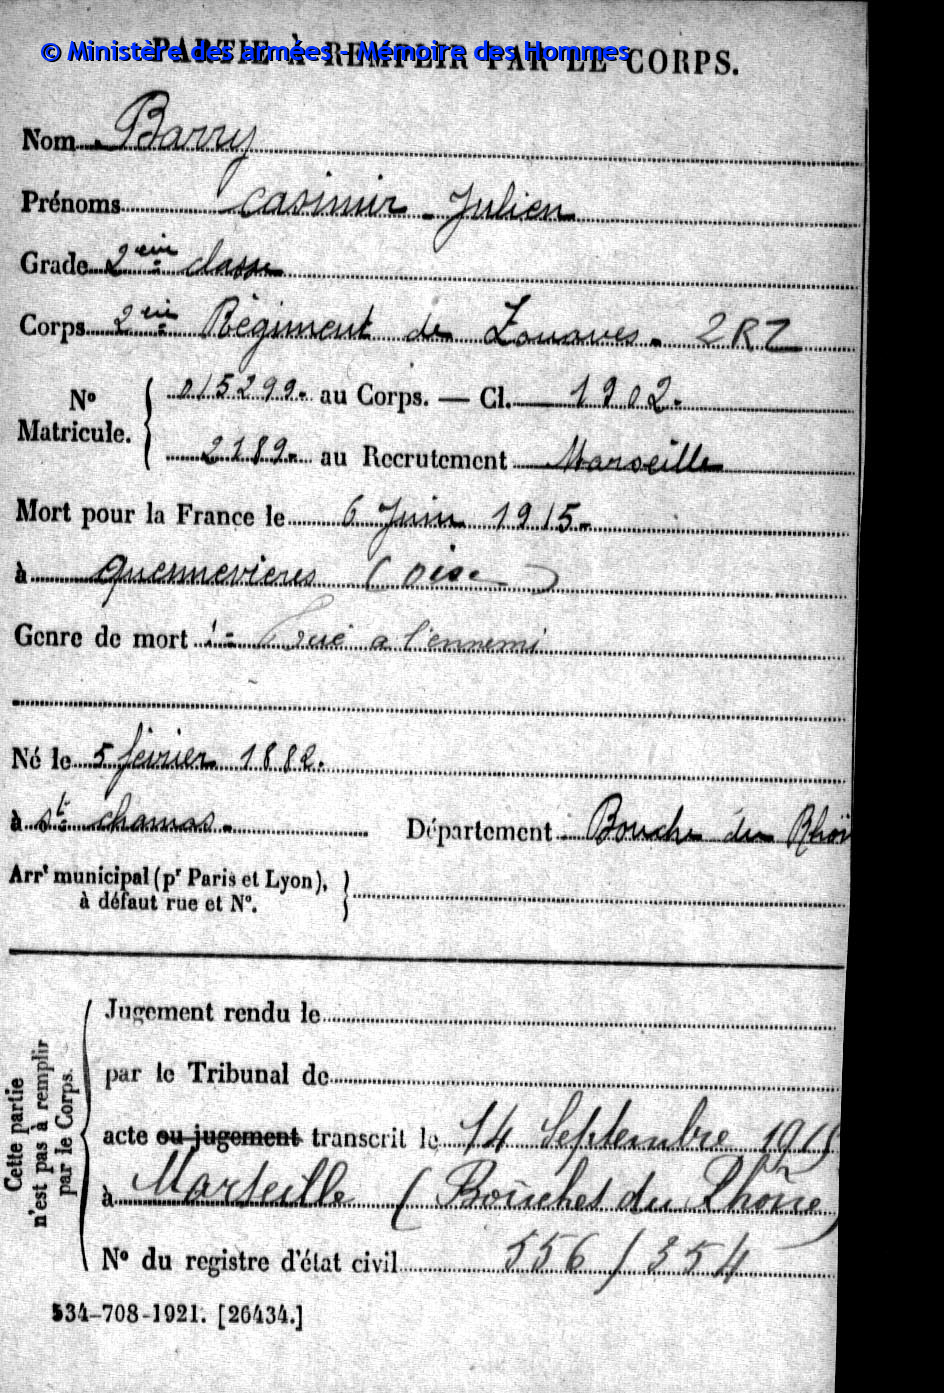 © Ministère des armées - Mémoire des Hommes
PARTIE À REMPLIR PAR LE CORPS.
Nom Barry
Prénoms Casimir - Julien
Grade 2eme classe
Corps 2eme Régiment de Zouaves. 2RZ
No Matricule. 015299. au Corps. — Cl. 1902.
2189. au Recrutement Marseille
Mort pour la France le 6 Juin 1915.
à Quennevieres (Oise)
Genre de mort Tué a l'ennemi
Né le 5 février 1882.
à St chamas. Département Bouche du Rhôn
Arrt municipal (pr Paris et Lyon),
à défaut rue et No.
Cette partie
n'est pas à remplir
par le Corps.
Jugement rendu le
par le Tribunal de
acte ou jugement transcrit le 14 Septembre 1915
à Marseille (Bouches du Rhône)
No du registre d'état civil 556/354
534-708-1921. [26434.]